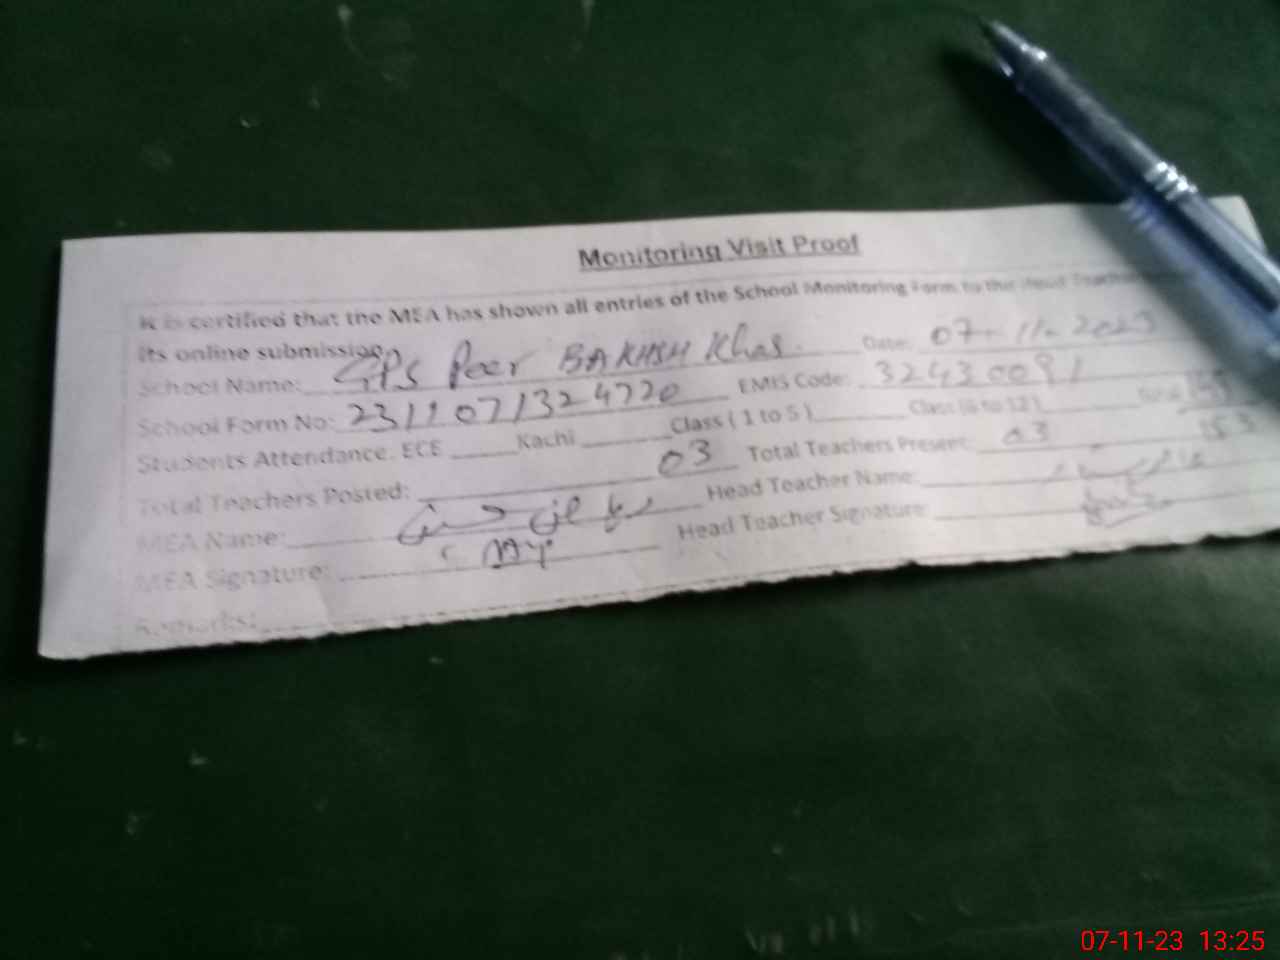 Monitoring Visit Proof
It is certified that the MEA has shown all entries of the School Monitoring Form to the Head Teacher
its online submission.
School Name: GPS Peer BAKHSH Khas. Date: 07-11-2023
School Form No: 2311071324720 EMIS Code: 32430091
Students Attendance: ECE ______ Kachi ________ Class ( 1 to 5 ) ________ Class (6 to 12) ________ Total
153
Total Teachers Posted: 03 Total Teachers Present: 03
MEA Name: Head Teacher Name:
MEA Signature: Head Teacher Signature:
Remarks:
07-11-23 13:25